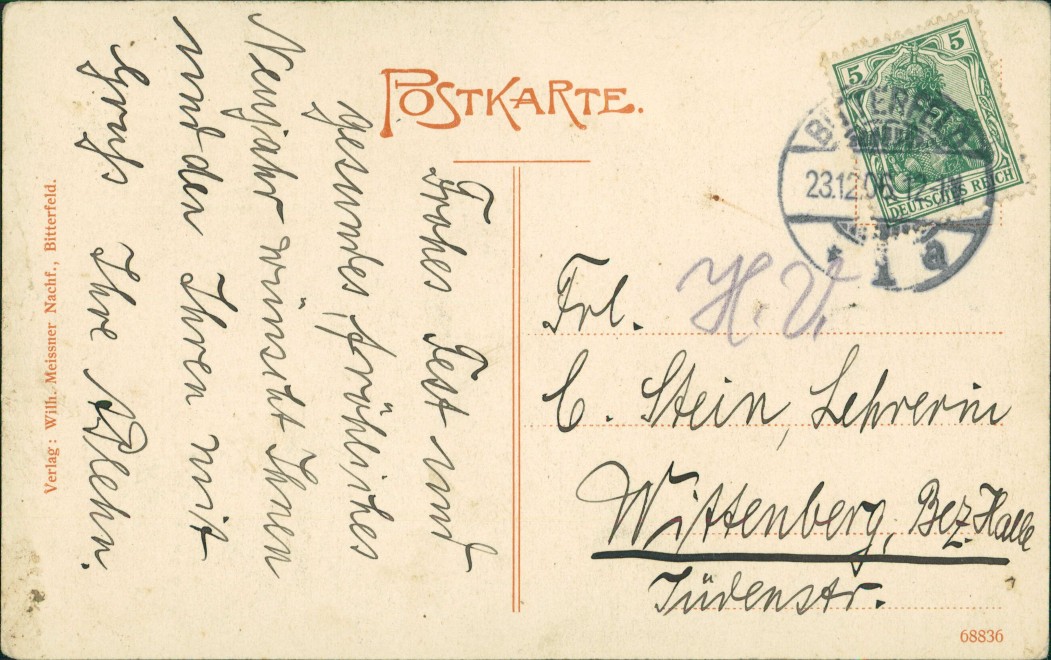 POSTKARTE.
Frohes Fest und
gesundes, fröhliches
Neujahr wünscht Ihnen
und den Ihren mit
Gruß Ihre
Verlag: Wilh. Meissner Nachf., Bitterfeld.
5 5
DEUTSCHES REICH
BITTERFELD
23.12.06. 12-1N
* 1 a
H. V.
Frl.
C. Stein, Lehrerin
Wittenberg, Bez. Halle
Jüdenstr.
68836